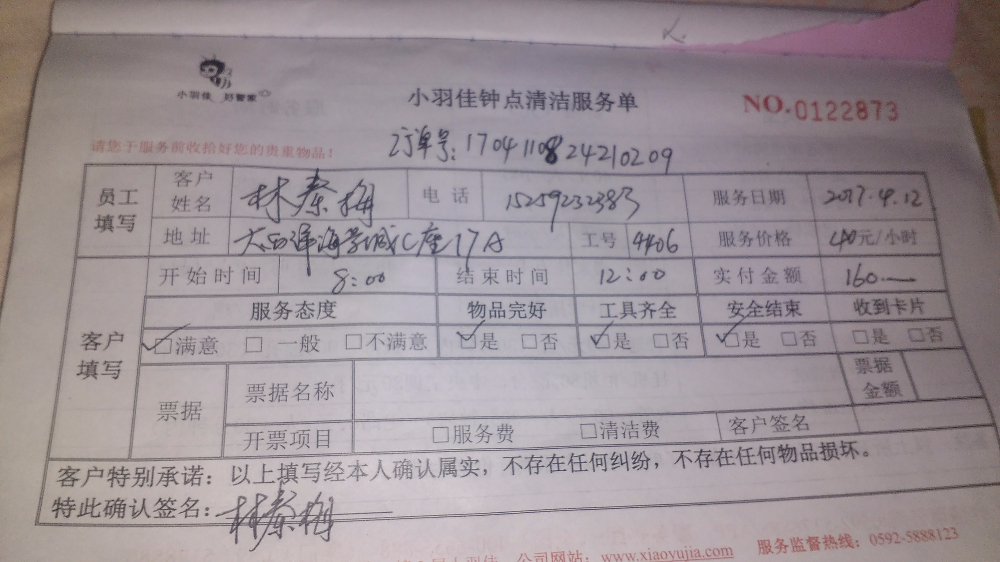 小羽佳 好管家
小羽佳钟点清洁服务单
NO.0122873
请您于服务前收拾好您的贵重物品！
订单号：1704110824210209
员工填写 客户姓名 林秦梅 电话 15259232383 服务日期 2017.4.12
地址 大西洋海景城C座17A 工号 4406 服务价格 40元/小时
客户填写 开始时间 8：00 结束时间 12：00 实付金额 160
服务态度 物品完好 工具齐全 安全结束 收到卡片
☑满意 □一般 □不满意 ☑是 □否 ☑是 □否 ☑是 □否 □是 □否
票据 票据名称 票据金额
开票项目 □服务费 □清洁费 客户签名
客户特别承诺：以上填写经本人确认属实，不存在任何纠纷，不存在任何物品损坏。
特此确认签名：林秦梅
公司网站：www.xiaoyujia.com 服务监督热线：0592-5888123